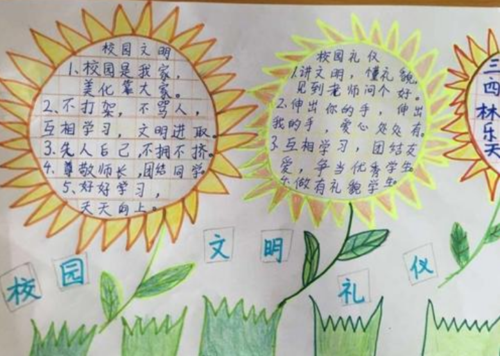 校园文明
1、校园是我家，
美化靠大家。
2、不打架，不骂人，
互相学习，文明进取。
3、先人后己，不拥不挤。
4、尊敬师长，团结同学。
5、好好学习，
天天向上。
校园礼仪
1.讲文明，懂礼貌，
见到老师问个好。
2、伸出你的手，伸出
我的手，爱心处处有。
3、互相学习，团结友
爱，争当优秀学生
4、做有礼貌学生。
三四林乐天
校园文明礼仪